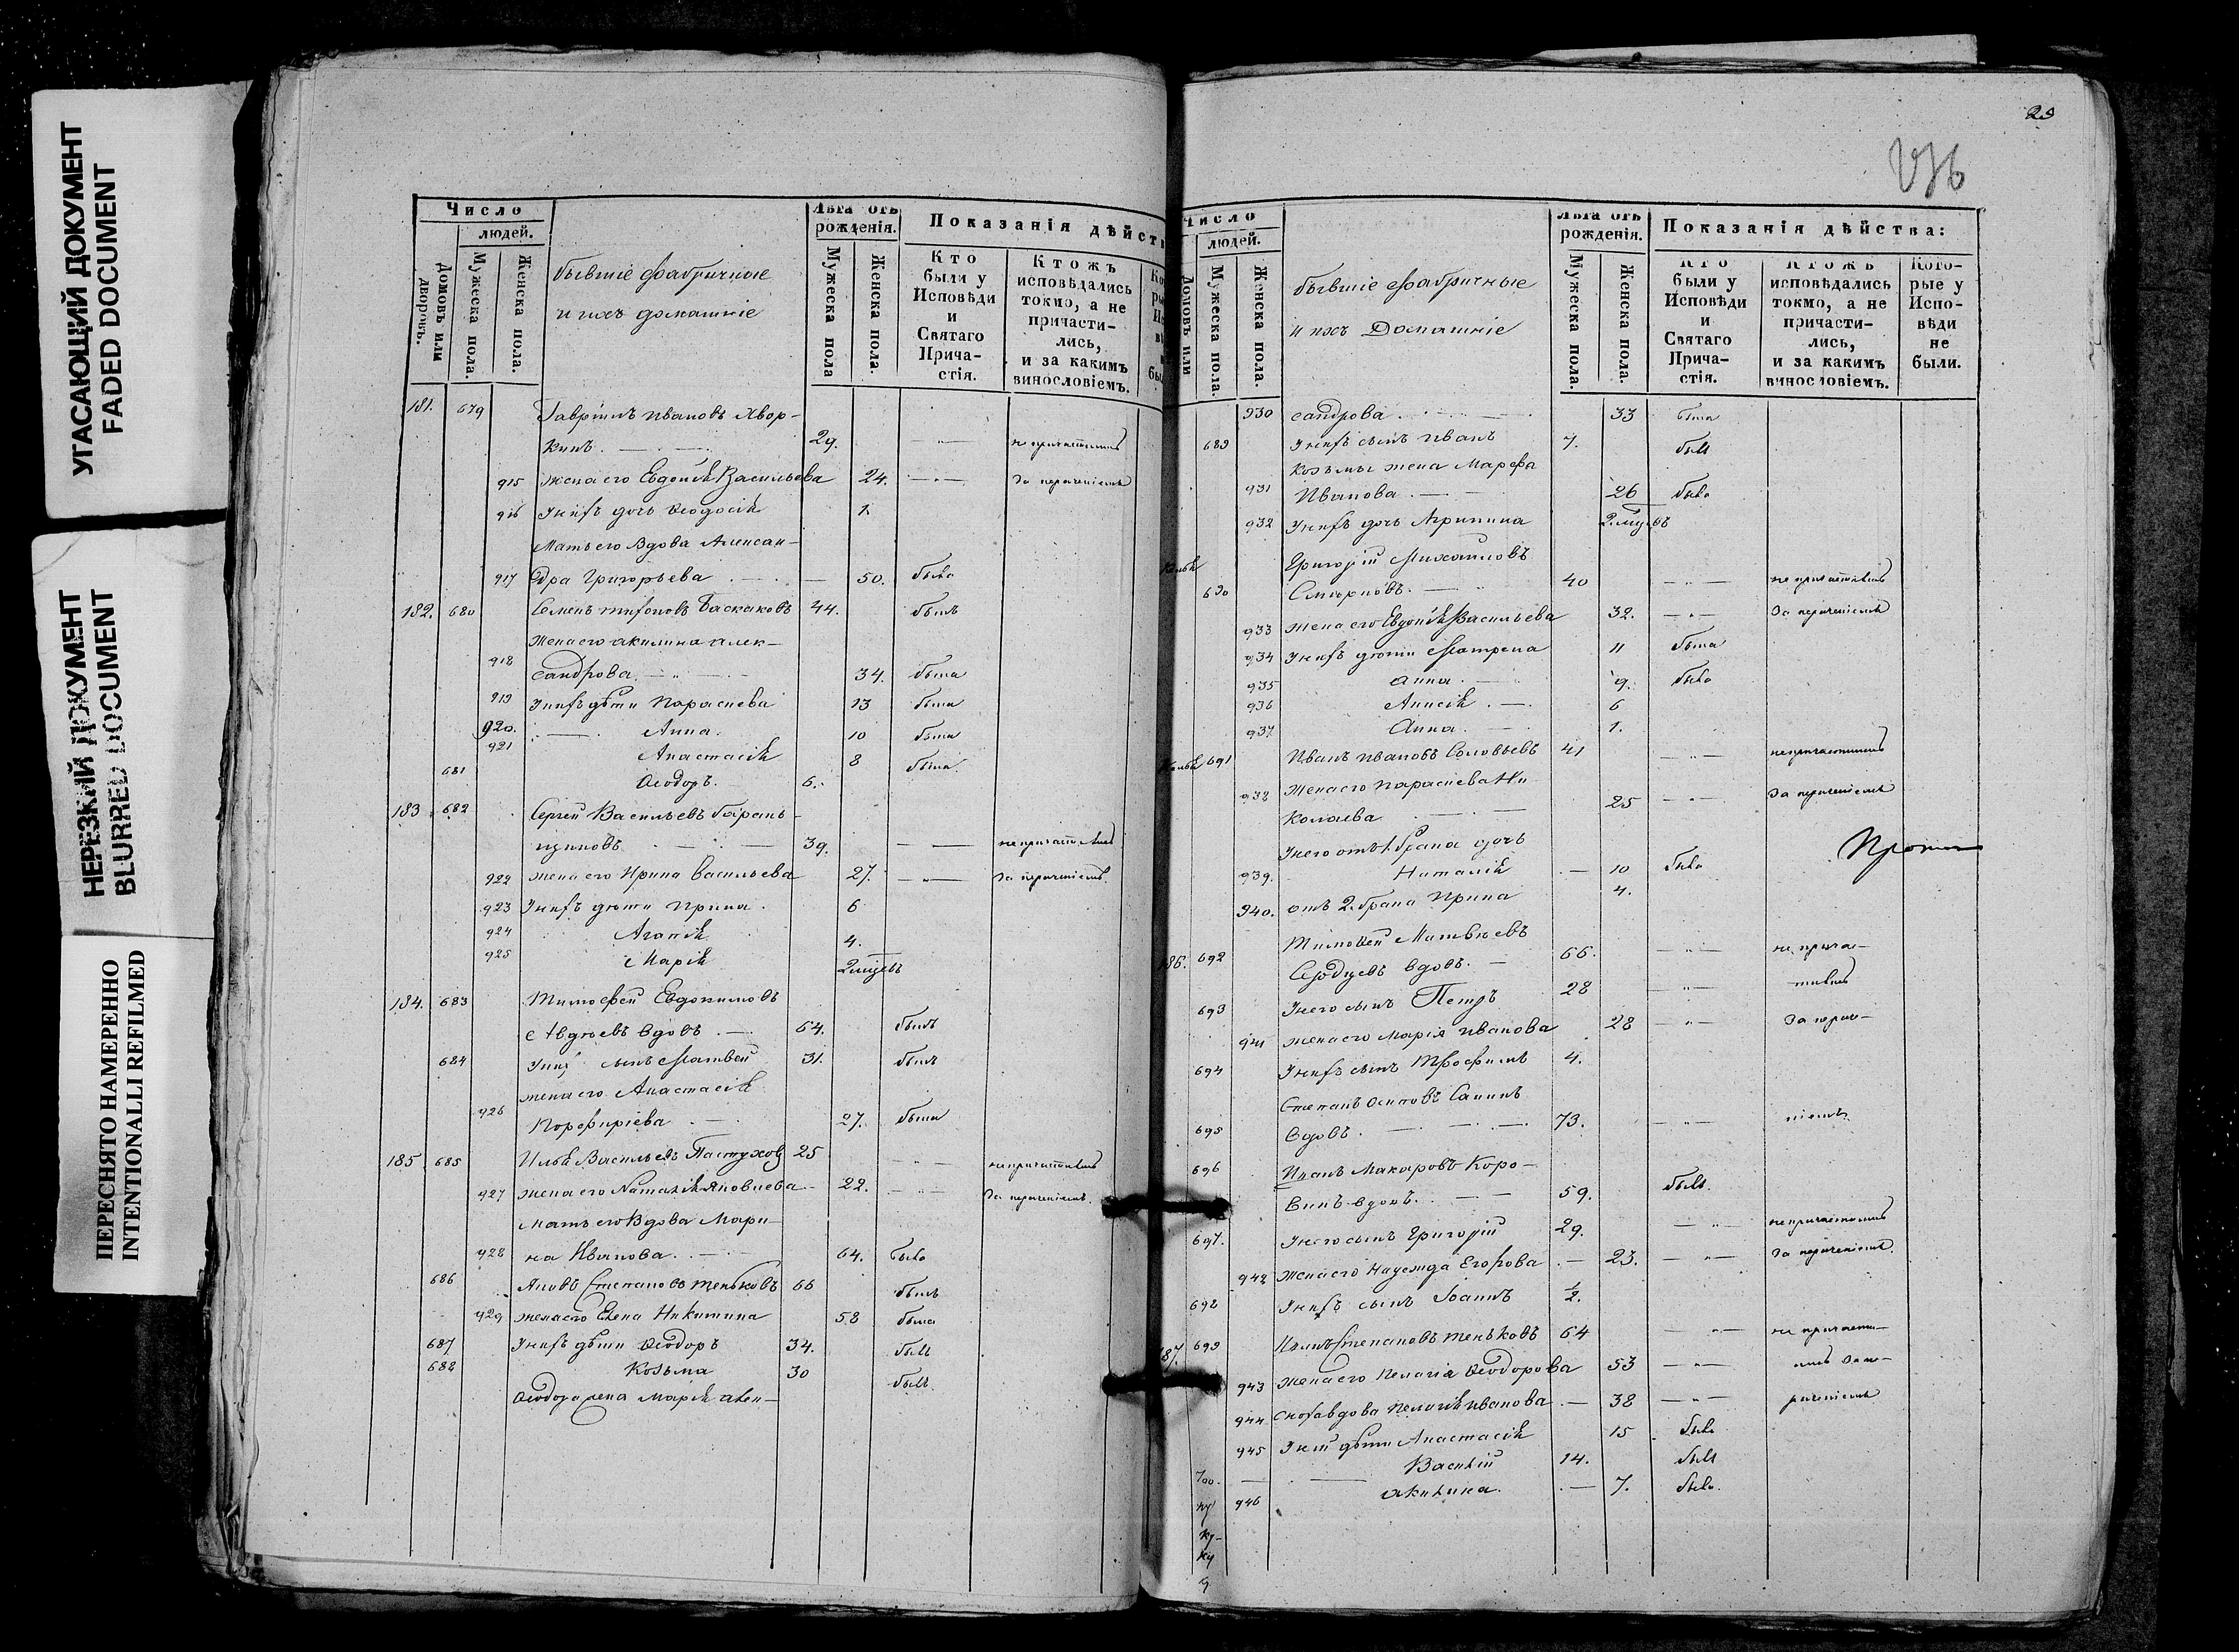 УГАСАЮЩИЙ ДОКУМЕНТ
FADED DOCUMENT
НЕРЕЗКИЙ ДОКУМЕНТ
BLURRED DOCUMENT
ПЕРЕСНЯТО НАМЕРЕННО
INTENTIONALLI REFILMED
Число
людей.
Домовъ или дворовъ.
Мужеска пола.
Женска пола.
бывшіе фабричные
и ихъ домашніе
Лѣта отъ рожденія.
Мужеска пола
Женска пола.
Показанія дѣйст
Кто были у Исповѣди и Святаго Прича-стія.
Ктожъ исповѣдались токмо, а не причасти-лись, и за какимъ винословіемъ.
181. 679 Гавріилъ Ивановъ Хвор-
кинъ. 29. не причастились
915 жена его Евдокія Васильева 24. За нерачениемъ
916 У нихъ дочь Ѳеодосія 1.
Мать его вдова Алексан-
917 дра Григорьева 50. была
182. 680 Семенъ Баскаковъ 44. былъ
Жена его Акилина Алек-
918 сандрова. 34. была
919 У нихъ дѣти Параскева 13 была
920. Анна. 10 была
921 Анастасія 8 была.
681 Ѳеодоръ. 6.
183 682 Сергей Васильевъ Баран-
щиковъ 39. не причастились
922 жена его Ирина Васильева 27. За нерачениемъ.
923 У нихъ дѣти Ирина. 6
924 Агапія 4.
925 Марія 2 мцевъ
184. 683 Тимофей Евдокимовъ
Авдѣевъ вдовъ. 64. былъ
684 У него сынъ Матвей 31. былъ
жена его Анастасія
926 Порфиріева 27. была
185. 685 Илья Васильевъ Пастухов 25 не причастились
927 жена его Наталія Яковлева 22. За нерачениемъ.
Мать его вдова Мари-
928 на Иванова. 64. была
686 Яковъ Степановъ Теньковъ 66 былъ
929 жена его Елена Никитина 58 была
687 У нихъ дѣти Ѳеодоръ 34. былъ
688 Козьма 30 былъ.
Ѳеодора жена Марія Алек-
29
Число
людей.
Домовъ или
Мужеска пола.
Женска пола.
бывшіе фабричные
и ихъ Домашніе
Лѣта отъ рожденія.
Мужеска пола.
Женска пола.
Показанія дѣйства:
Кто были у Исповѣди и Святаго Прича-стія.
Ктожъ исповѣдались токмо, а не причасти-лись, и за какимъ винословіемъ.
Кото-рые у Испо-вѣди не были.
930 сандрова 33 была
689 У нихъ сынъ Иванъ 7. былъ
Козьмы жена Марфа
931 Иванова 26 была
932 У нихъ дочь Агрипина 2 мцевъ
Григорій Михаиловъ
690 Смирновъ. 40 не причастились
933 жена его Евдокія Васильева 32. За нерачениемъ
934 У нихъ дѣти Матрена 11 была
935 Анна. 9. была
936 Анисія 6
937. Анна. 1.
691 Иванъ Ивановъ Соловьевъ 41 не причастились
938 Жена его Параскева Ни
колаева 25 За нерачениемъ
У него отъ 1. брака дочь
939. Наталія 10 была
940. отъ 2. брака Ирина 4.
186. 692 Тимофей Матвѣевъ
вдовъ. 66. не прича-
693 У него сынъ Петръ 28 стились
941 жена его Марія Иванова 28 За нера-
694 У нихъ сынъ Трофимъ 4.
Степанъ Осиповъ Санинъ
695 вдовъ. 73. ніемъ
696 Иванъ Макаровъ Коро-
винъ вдовъ. 59. былъ.
697. У него сынъ Григорій 29. не причастились
942 жена его Надежда Егорова 23. За нерачениемъ.
698 У нихъ сынъ Іоаннъ ½.
187. 699 Степановъ Теньковъ 64 не причасти-
943 жена его Пелагія Ѳеодорова 53 лись За не-
944 сноха вдова Пелагія Иванова 38 рачениемъ
945 У ней дѣти Анастасія 15 была
700. Василій 14. былъ
946 Акилина. 7. была.